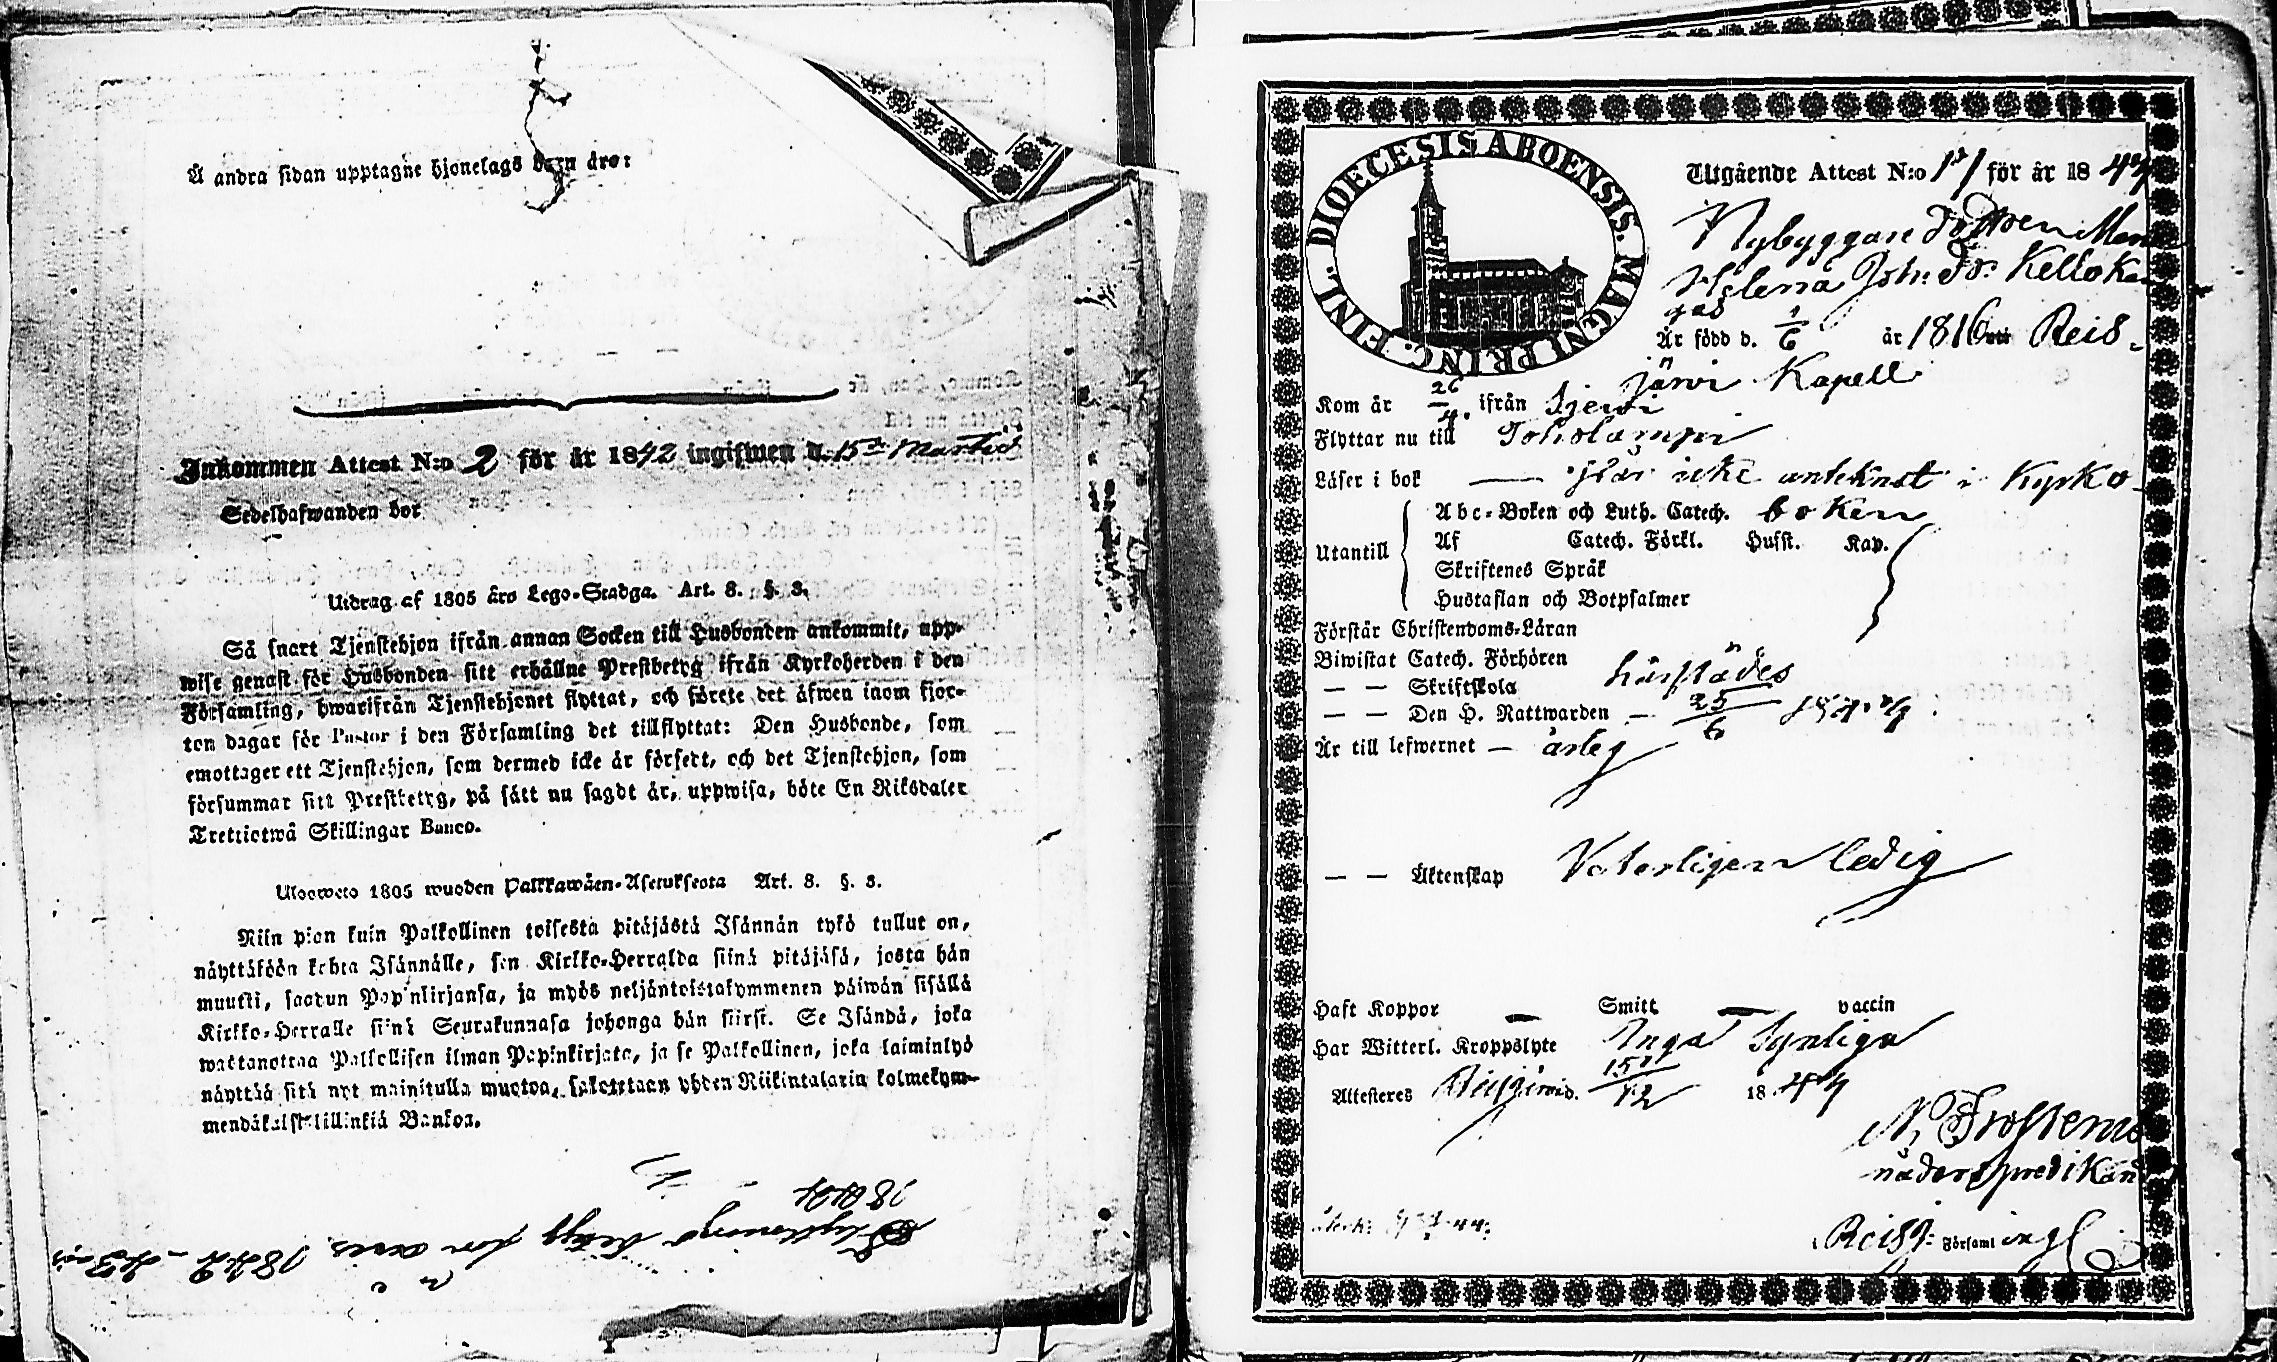 Å andra sidan upptagne hjonelags barn äro:
Inkommen Attest N:o 2 för år 1842 ingifwen d. 15de Martii
Sedelhafwanden bor
Utdrag af 1805 års Lego-Stadga. Art. 8. §. 3.
Så snart Tjenstehjon ifrån annan Socken till Husbonden ankommit, upp-
wise genast för Husbonden sitt erhållne Prestbetyg ifrån Kyrkoherden i den
Församling, hwarifrån Tjenstehjonet flyttat, och förete det äfwen inom fjor-
ton dagar för Pastor i den Församling det tillflyttat: Den Husbonde, som
emottager ett Tjenstehjon, som dermed icke är försedt, och det Tjenstehjon, som
försummar sitt Prestbetyg, på sätt nu sagdt är, uppwisa, böte En Riksdaler
Trettiotwå Skillingar Banco.
Ulosweto 1805 wuoden Palkkawäen-Asetuksesta Art. 8. §. 3.
Niin pian kuin Palkollinen toisesta pitäjästä Isännän tykö tullut on,
näyttäköön kohta Isännälle, sen Kirkko-Herralda siinä pitäjäsä, josta hän
muutti, saadun Papinkirjansa, ja myös neljäntoistakymmenen päiwän sisällä
Kirkko-Herralle siinä Seurakunnasa johonga hän siirsi. Se Isändä, joka
wastanottaa Palkollisen ilman Papinkirjata, ja se Palkollinen, joka laiminlyö
näyttää sitä nyt mainitulla muotoa, sakotetaan yhden Riikintalarin kolmekym-
mendäkaksikillinkiä Bankoa.
1844
Flyttnings betyg för åren 1842 - 43
DIOECESIS ABOENSIS. MAGNI PRINC. FINL.
Utgående Attest N:o 171 för år 1844
Nybyggare Dottren
Helena Joh: Dr. Kelloka
gas
Är född d. 1/6 år 1816 uti Reis-
järvi Kapell
Kom år 26/4. ifrån Sjewi
Flyttar nu till Toholampi
Läser i bok — står icke antecknat i Kyrko-
Utantill
Abc-Boken och Luth. Catech. boken
Af Catech. Förkl. Husst. Kap.
Skriftenes Språk
Hustaflan och Botpsalmer
Förstår Christendoms-Läran
Biwistat Catech. Förhören
— — Skriftskola härstädes
— — Den H. Nattwarden — 25/6 1844
Är till lefwernet — ärlig
— — Äktenskap Veterligen ledig
Haft Koppor — Smitt — vaccin
Har Witterl. Kroppslyte Inga Synliga
Attesteres Reisjärwi d. 15/12 1844
N. Frosterus
nådårspredikand
Reisj: Församling